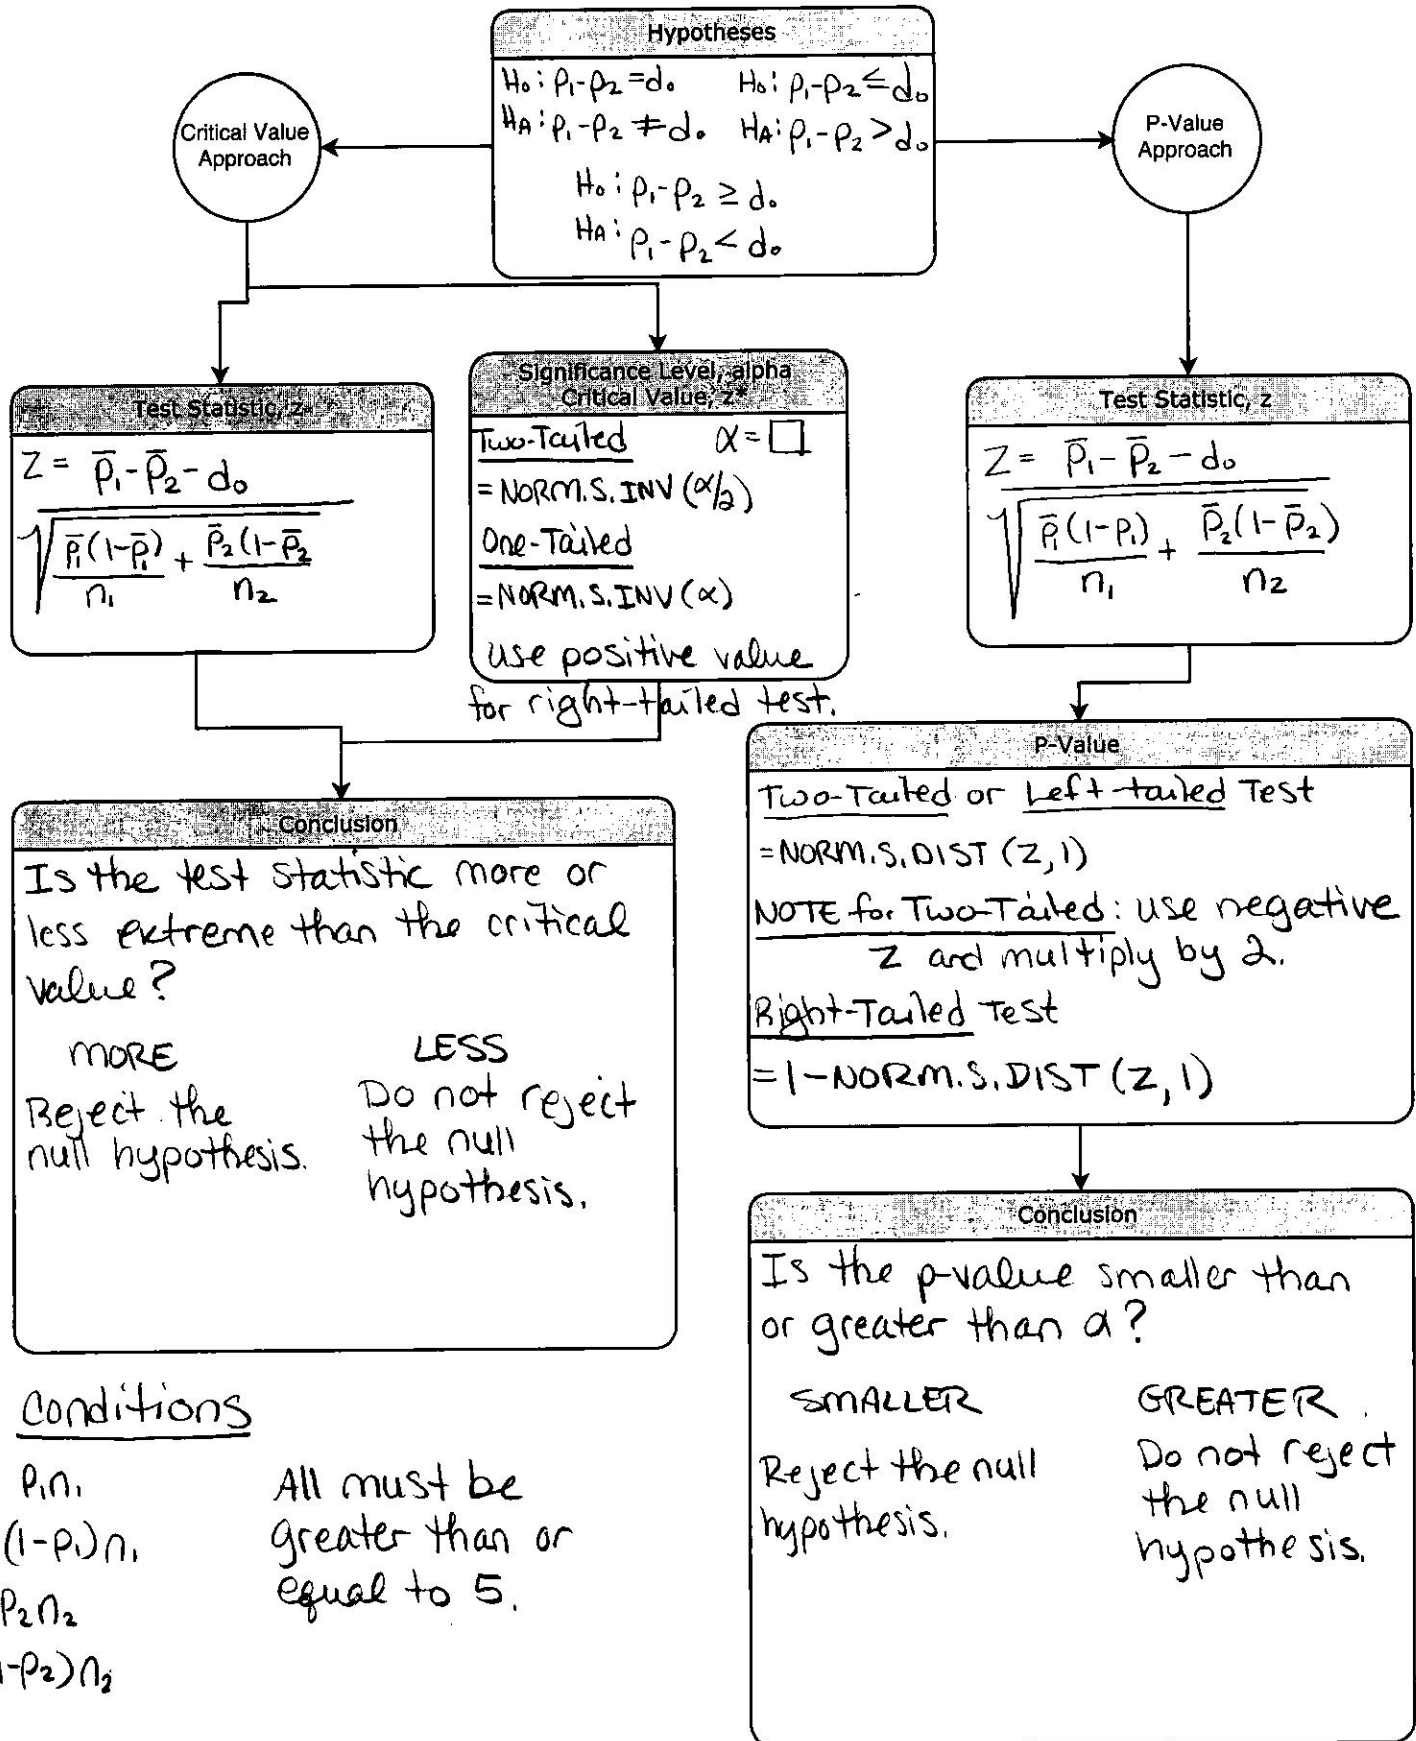 Hypotheses
H₀: p₁-p₂ = d₀ H₀: p₁-p₂ ≤ d₀
HA: p₁-p₂ ≠ d₀ HA: p₁-p₂ > d₀
H₀: p₁-p₂ ≥ d₀
HA: p₁-p₂ < d₀
Critical Value
Approach
P-Value
Approach
Test Statistic, z
Z = p̄₁-p̄₂-d₀
√ p̄₁(1-p̄₁) + p̄₂(1-p̄₂
n₁ n₂
Significance Level, alpha
Critical Value, z*
Two-Tailed α = □
=NORM.S.INV(α/2)
One-Tailed
=NORM.S.INV(α)
use positive value
for right-tailed test.
Test Statistic, z
Z = p̄₁-p̄₂-d₀
√ p̄₁(1-p₁) + p̄₂(1-p̄₂)
n₁ n₂
Conclusion
Is the test statistic more or
less extreme than the critical
value?
MORE LESS
Reject the Do not reject
null hypothesis. the null
hypothesis.
P-Value
Two-Tailed or Left-tailed Test
=NORM.S.DIST(Z,1)
NOTE for Two-Tailed: use negative
z and multiply by 2.
Right-Tailed Test
=1-NORM.S.DIST(Z,1)
Conclusion
Is the p-value smaller than
or greater than α?
SMALLER GREATER
Reject the null Do not reject
hypothesis. the null
hypothesis.
Conditions
p₁n₁ All must be
(1-p₁)n₁ greater than or
p₂n₂ equal to 5.
-p₂)n₂